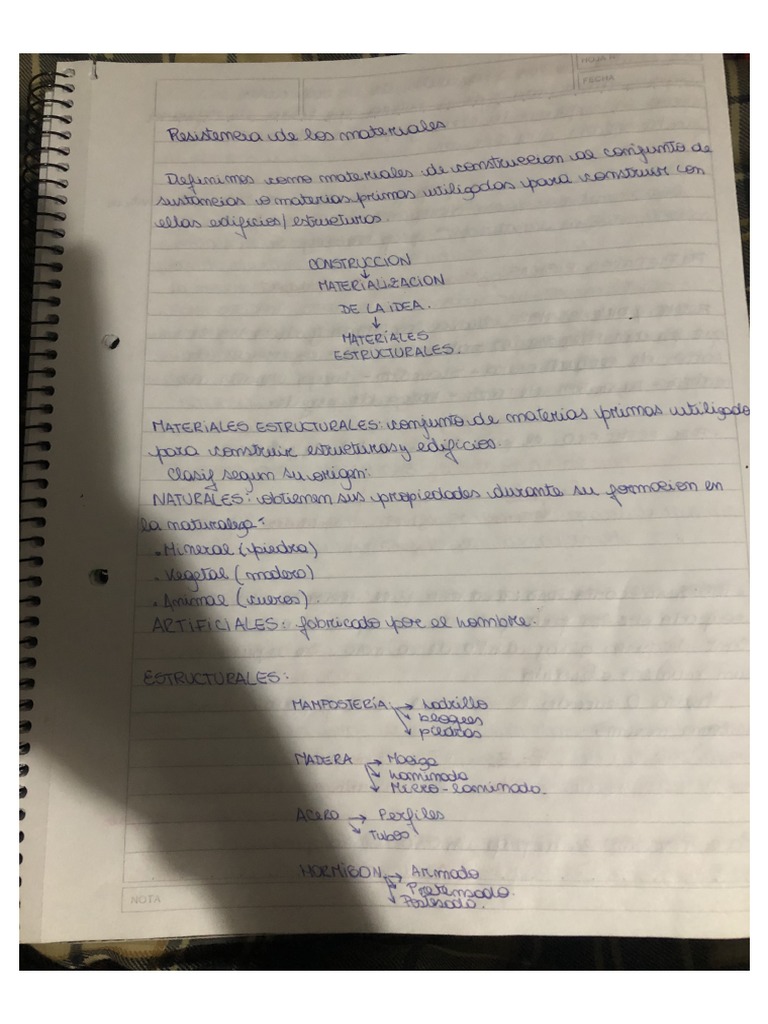 HOJA N°
FECHA
Resistencia de los materiales
Definimos como materiales de construccion al conjunto de
sustancias o materias primas utilizadas para construir con
ellas edificios/estructuras.
CONSTRUCCION
↓
MATERIALIZACION
DE LA IDEA.
↓
MATERIALES
ESTRUCTURALES.
MATERIALES ESTRUCTURALES: conjunto de materias primas utilizado
para construir estructuras y edificios.
Clasif segun su origen:
NATURALES: obtienen sus propiedades durante su formacion en
la naturaleza:
• Mineral (piedra)
• Vegetal (madera)
• Animal (cueros).
ARTIFICIALES: fabricado por el hombre.
ESTRUCTURALES:
MAMPOSTERÍA: → Ladrillo
→ bloques
→ piedras
MADERA → Maciza
→ Laminada
→ Micro-laminado.
ACERO → Perfiles
→ Tubos
HORMIGON → Armado
→ Pretensado.
→ Postesado.
NOTA